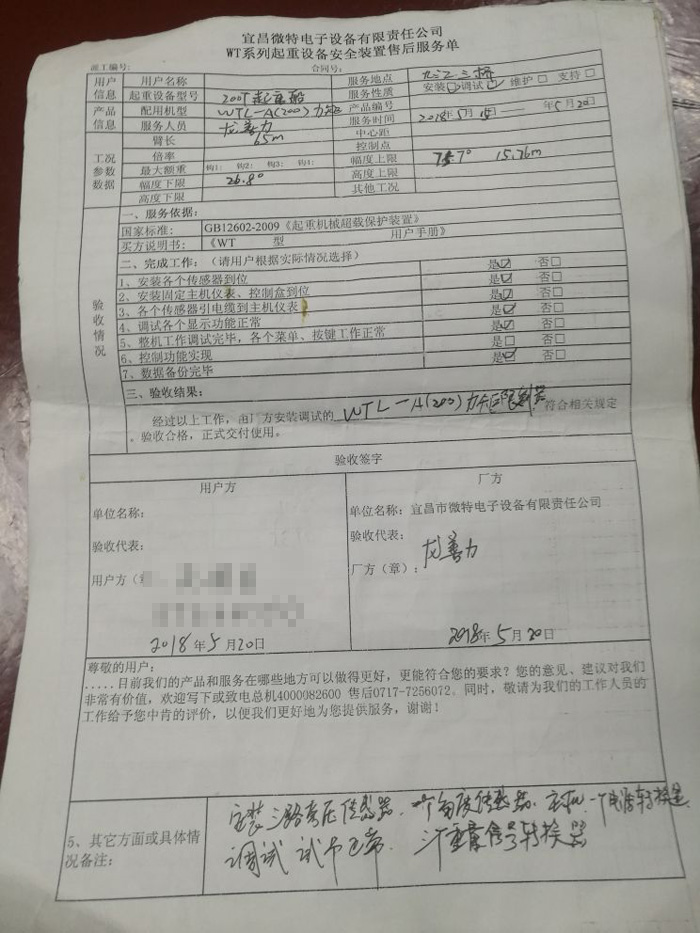 宜昌微特电子设备有限责任公司
WT系列起重设备安全装置售后服务单
派工编号: 合同号:
用户信息 用户名称 服务地点 九江三桥
起重设备型号 200T起重船 服务性质 安装☑ 调试☑ 维护□ 支持□
产品信息 配用机型 WTL-A(200)力矩 产品编号
服务人员 龙善力 服务时间 2018年5月15日—— 年5月20日
工况参数数据 臂长 65m 中心距
倍率 控制点
最大额重 钩1: 钩2: 钩3: 钩1: 幅度上限 75.7° 15.76m
幅度下限 26.8° 高度上限
高度下限 其他工况
验收情况
一、服务依据:
国家标准: GB12602-2009《起重机械超载保护装置》
买方说明书: 《WT 型 用户手册》
二、完成工作:(请用户根据实际情况选择)
1、安装各个传感器到位 是☑ 否□
2、安装固定主机仪表、控制盒到位 是☑ 否□
3、各个传感器引电缆到主机仪表 是☑ 否□
4、调试各个显示功能正常 是☑ 否□
5、整机工作调试完毕,各个菜单、按键工作正常 是☑ 否□
6、控制功能实现 是□ 否□
7、数据备份完毕 是☑ 否□
三、验收结果:
经过以上工作,由厂方安装调试的 WTL-A(200)力矩限制器 符合相关规定
。验收合格,正式交付使用。
验收签字
用户方 厂方
单位名称: 单位名称:宜昌市微特电子设备有限责任公司
验收代表: 验收代表: 龙善力
用户方(章 厂方(章):
2018年5月20日 2018年5月20日
尊敬的用户:
.....目前我们的产品和服务在哪些地方可以做得更好,更能符合您的要求?您的意见、建议对我们
非常有价值,欢迎写下或致电总机4000082600 售后0717-7256072。同时,敬请为我们的工作人员的
工作给予您中肯的评价,以便我们更好地为您提供服务,谢谢!
5、其它方面或具体情况备注:
安装三路 传感器 传感器 主机
调试 试吊正常 重量信号转换器